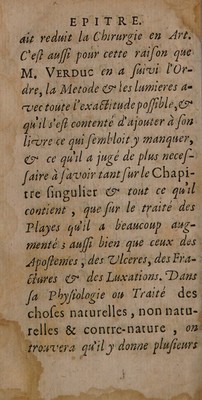 EPITRE.
ait reduit la Chirurgie en Art.
C'est aussi pour cette raison que
M. VERDUC en a suivi l'Or-
dre, la Metode & les lumieres a-
vec toute l'exactitude possible, &
qu'il s'est contenté d'ajouter à son
livre ce qui sembloit y manquer,
& ce qu'il a jugé de plus neces-
saire à savoir tant sur le Chapi-
tre singulier & tout ce qu'il
contient, que sur le traité des
Playes qu'il a beaucoup aug-
menté; aussi bien que ceux des
Apostemes, des Ulceres, des Fra-
ctures & des Luxations. Dans
sa Physiologie ou Traité des
choses naturelles, non natu-
relles & contre-nature, on
trouvera qu'il y donne plusieurs